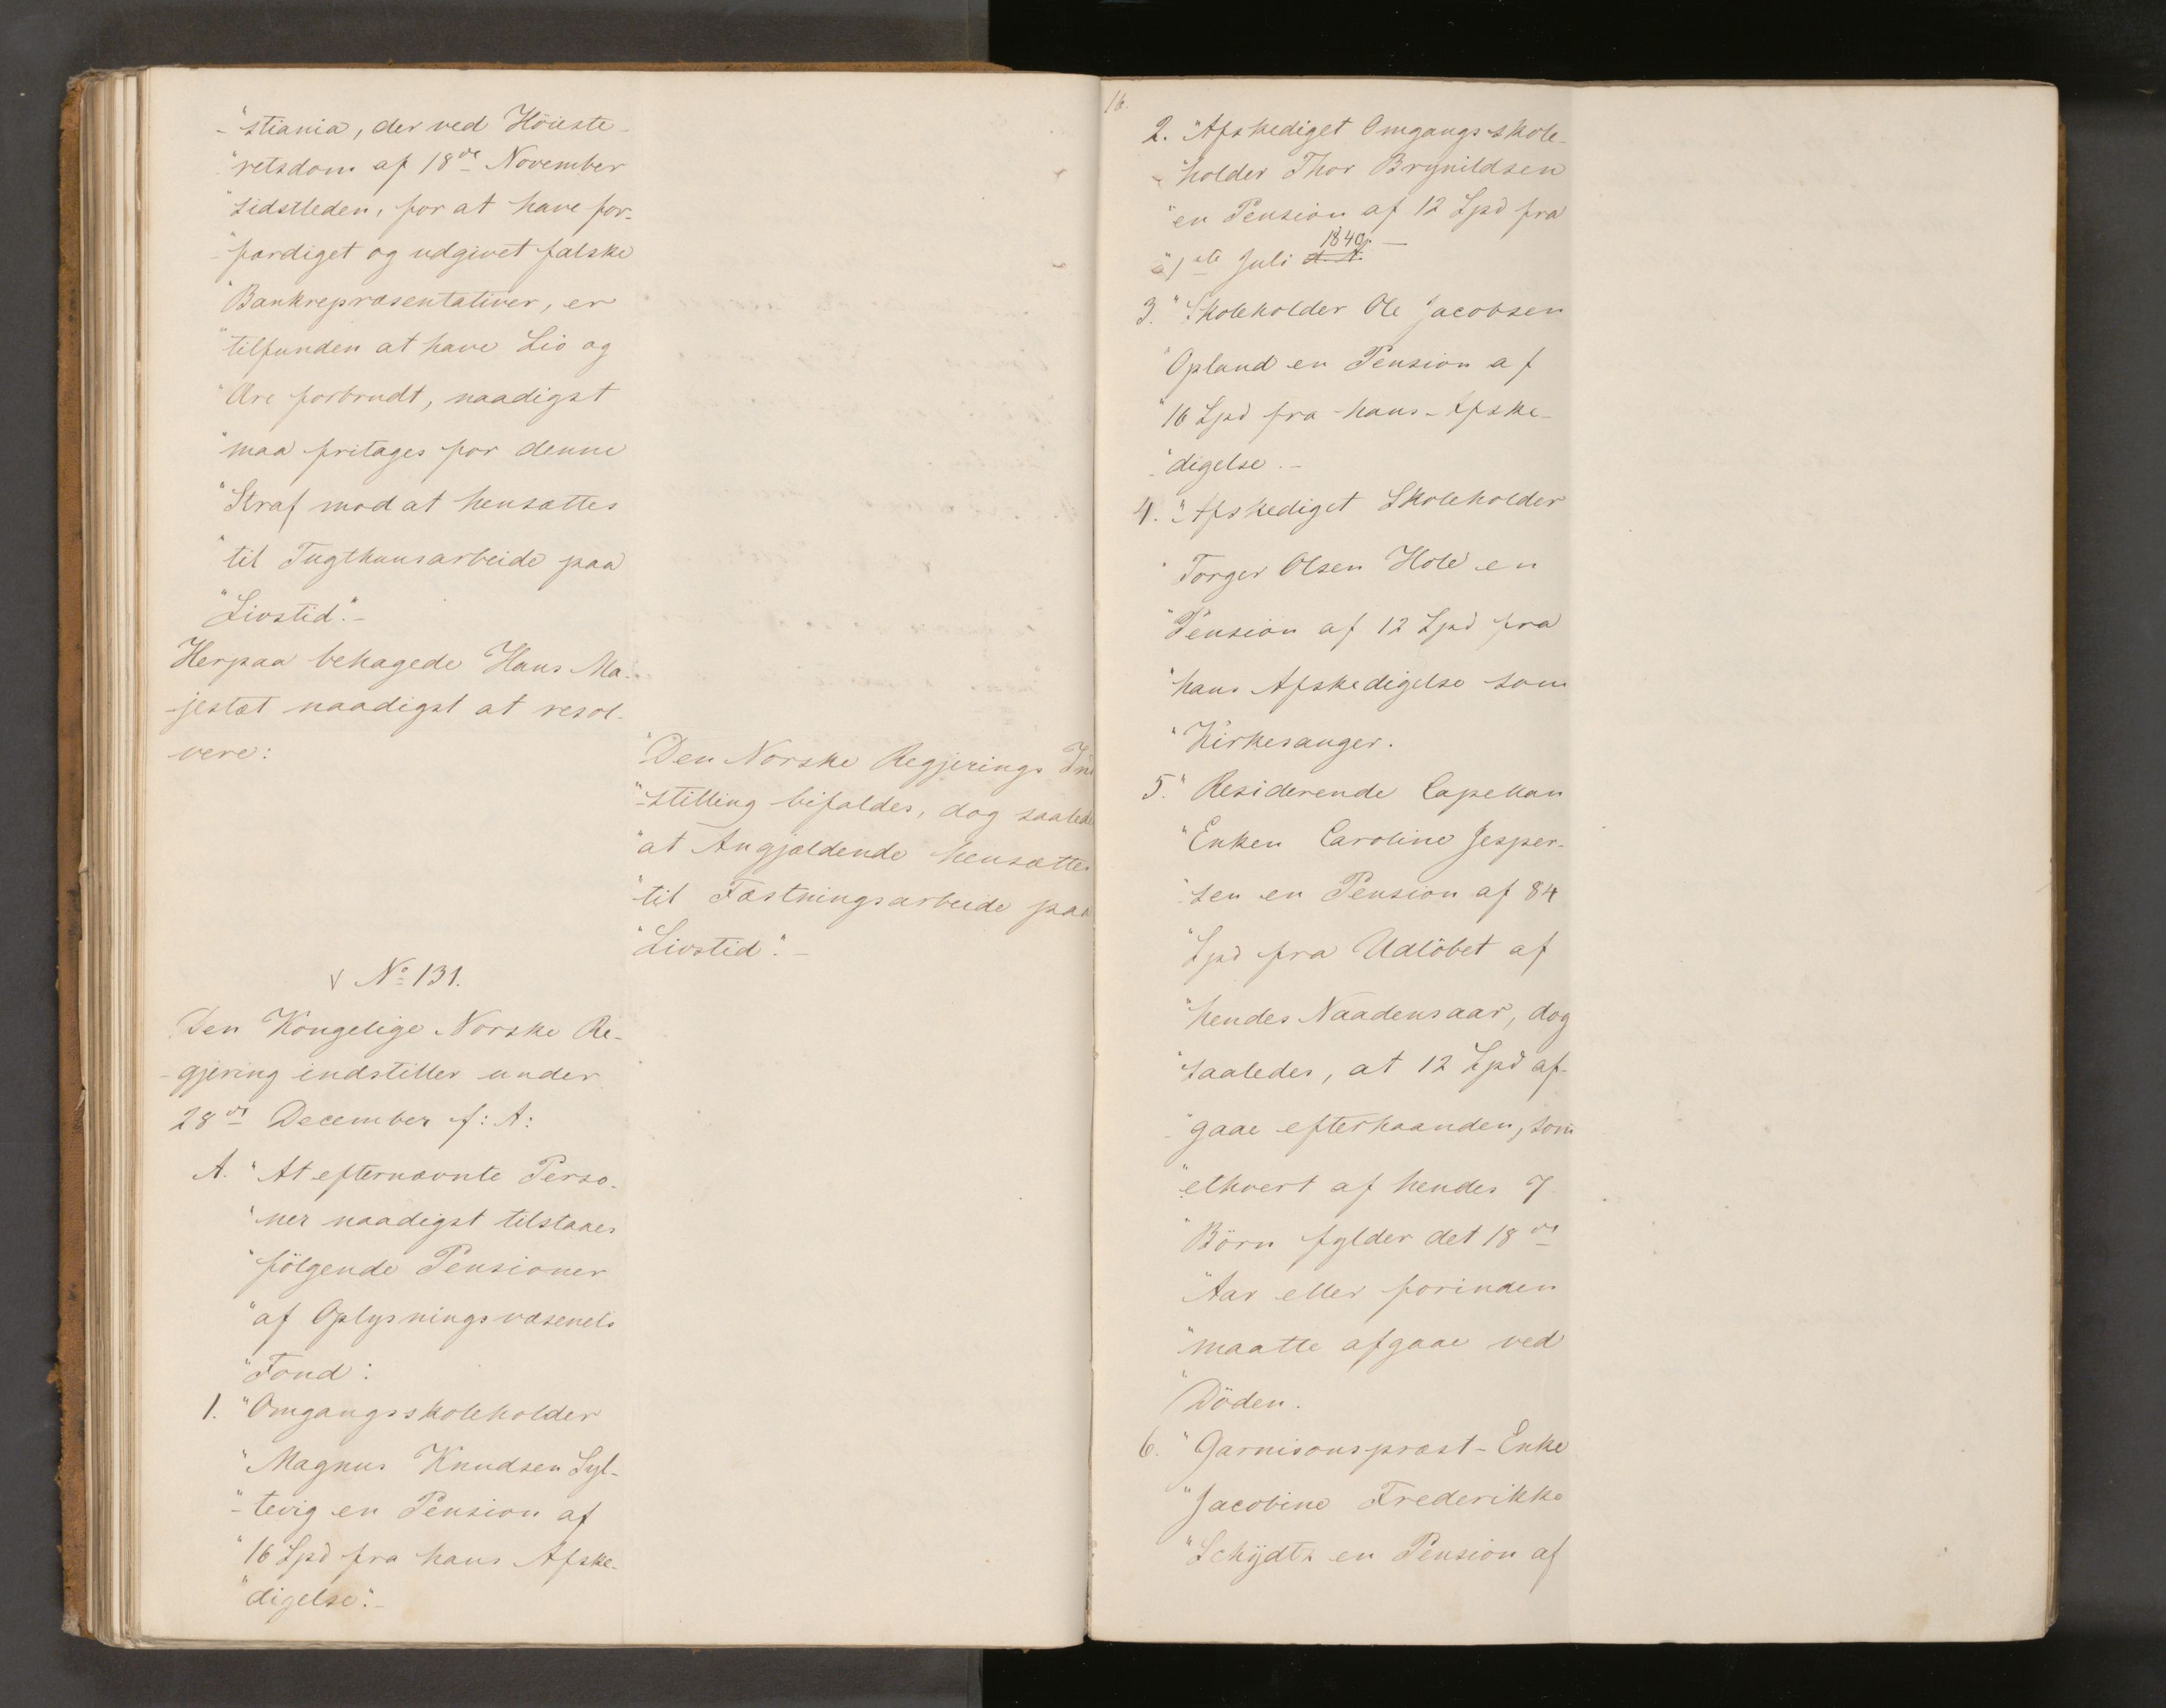 "stiania, der ved Höieste-
"retsdom af 18de November
"sidstleden, for at have for-
"færdiget og udgivet falske
"Bankrepræsentativer, er
"tilfunden at have Liv og
"Ære forbrudt, naadigst
"maa fritages for denne
"Straf mod at hensættes
"til Tugthuusarbeide paa
"Livstid."-
Herpaa behagede Hans Ma-
jestæt naadigst at resol-
vere:
"Den Norske Regjerings Ind
"stilling bifaldes, dog saalede
"at Angjældende hensættes
"til Fæstningsarbeide paa
"Livstid".-
No 131.
Den Kongelige Norske Re-
-gjering indstiller under
28de December f: A:
A. "At efternævnte Perso-
"ner naadigst tilstaaes
"fölgende Pensioner
"af Oplysningsvæsenets
"Fond:
1. "Omgangsskoleholder
"Magnus Knudsen Syl-
"-tevig en Pension af
"16 Spd fra hans Afske-
"digelse".-
16.
2. "Afskediget Omgangsskole-
"holder Thor Brynildsen
"en Pension af 12 Spd fra
1840. -
"1ste Juli d. A.
3. "Skoleholder Ole Jacobsen
"Opland en Pension af
"16 Spd fra hans Afske-
"digelse.-
4. "Afskediget Skoleholder
"Torger Olsen Hole en
"Pension af 12 Spd fra
"hans Afskedigelse som
"Kirkesanger.
5. "Residerende Capellan
"Enken Caroline Jesper-
"sen en Pension af 84
"Spd fra Udlöbet af
"hendes Naadensaar, dog
"saaledes, at 12 Spd af-
"gaae efterhaanden, som
"ethvert af hendes 7
"Börn fylder det 18de
"Aar eller forinden
"maatte afgaae ved
"Döden.
6. "Garnisonspræst-Enke
"Jacobine Frederikke
"Schydtz en Pension af